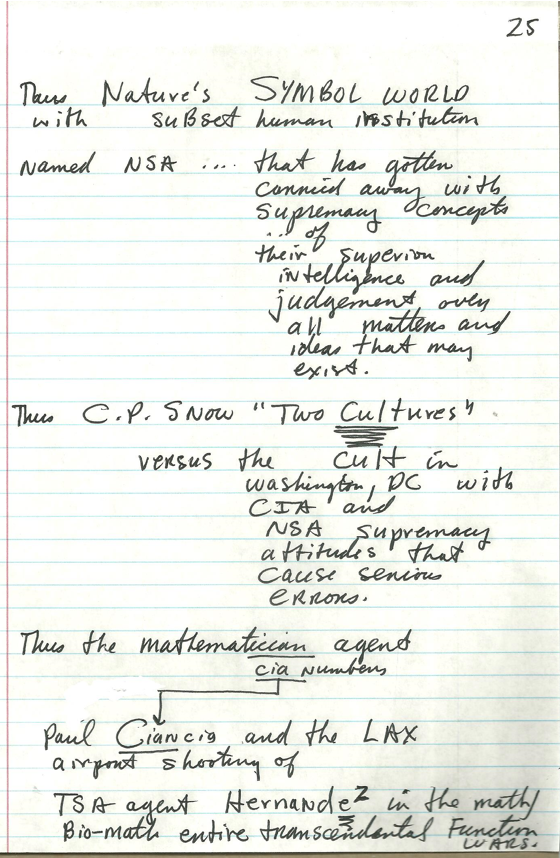 25
Thus Nature's SYMBOL WORLD
with subset human institution
Named NSA .... that has gotten
carried away with
supremacy concepts
... of
their superior
intelligence and
judgement over
all matters and
ideas that may
exist.
Thus C.P. SNOW "Two Cultures"
versus the Cult in
Washington, DC with
CIA and
NSA supremacy
attitudes that
cause serious
ERRORS.
Thus the mathematician agent
cia Numbers
Paul Ciancia and the LAX
airport shooting of
TSA agent Hernandez in the math/
Bio-math entire transcendental Function
WARS.